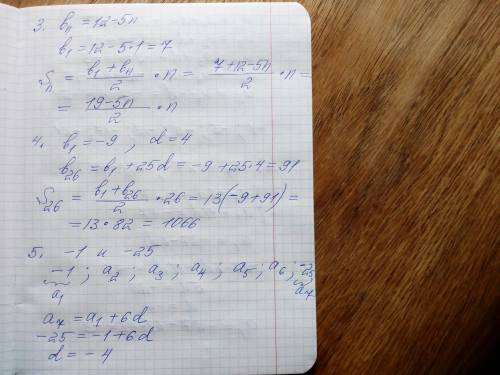 3. bₙ = 12-5n
b₁ = 12-5·1 = 7
Sₙ = (b₁+bₙ)/2 · n = (7+12-5n)/2 · n =
= (19-5n)/2 · n
4. b₁ = -9, d = 4
b₂₆ = b₁ + 25d = -9 + 25·4 = 91
S₂₆ = (b₁+b₂₆)/2 · 26 = 13(-9+91) =
= 13·82 = 1066
5. -1 и -25
-1; a₂; a₃; a₄; a₅; a₆; -25
a₁ a₇
a₇ = a₁ + 6d
-25 = -1 + 6d
d = -4